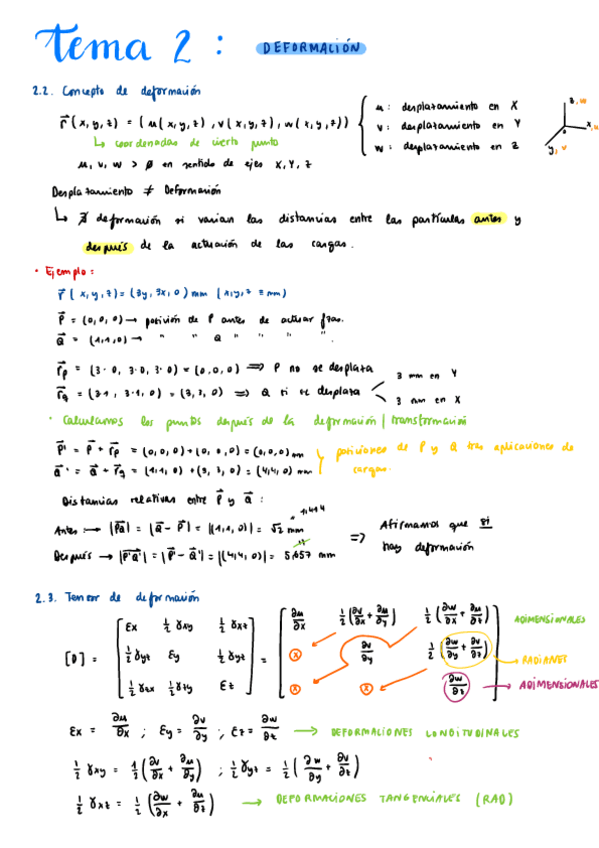 Tema 2 : DEFORMACIÓN
2.2. Concepto de deformación
r⃗ (x, y, z) = (u(x, y, z), v(x, y, z), w(x, y, z))
u : desplazamiento en X
v : desplazamiento en Y
w : desplazamiento en Z
z, w
x, u
y, v
↳ coordenadas de cierto punto
u, v, w > 0 en sentido de ejes X, Y, Z
Desplazamiento ≠ Deformación
↳ ∄ deformación si varian las distancias entre las partículas antes y
después de la actuación de las cargas.
• Ejemplo:
r⃗ (x, y, z) = (3y, 3x, 0) mm (x, y, z ≡ mm)
P⃗ = (0,0,0) → posición de P antes de actuar fzas.
Q⃗ = (1,1,0) → " " Q " " "
r⃗p = (3·0, 3·0, 3·0) = (0,0,0) => P no se desplaza
r⃗q = (3·1, 3·1, 0) = (3,3,0) => Q si se desplaza
3 mm en Y
3 mm en X
• Calculamos los puntos después de la deformación / transformación
P⃗' = P⃗ + r⃗p = (0,0,0) + (0,0,0) = (0,0,0) mm
Q⃗' = Q⃗ + r⃗q = (1,1,0) + (3,3,0) = (4,4,0) mm
posiciones de P y Q tras aplicaciones de
cargas.
Distancias relativas entre P⃗ y Q⃗ :
Antes : → |P⃗Q| = |Q⃗ - P⃗| = |(1,1,0)| = √2 mm
1,414
Después → |P⃗'Q'| = |P⃗' - Q⃗'| = |(4,4,0)| = 5,657 mm
=> Afirmamos que si
hay deformación
2.3. Tensor de deformación
[D] = [ εx ½ γxy ½ γxz ] = [ ∂u/∂x ½(∂v/∂x + ∂u/∂y) ½(∂w/∂x + ∂u/∂z) ] ADIMENSIONALES
[ ½ γyx εy ½ γyz ] [ ⊗ ∂v/∂y ½(∂w/∂y + ∂v/∂z) ] → RADIANES
[ ½ γzx ½ γzy εz ] [ ⊗ ⊗ ∂w/∂z ] → ADIMENSIONALES
εx = ∂u/∂x ; εy = ∂v/∂y ; εz = ∂w/∂z → DEFORMACIONES LONGITUDINALES
½ γxy = ½(∂v/∂x + ∂u/∂y) ; ½ γyz = ½(∂w/∂y + ∂v/∂z)
½ γxz = ½(∂w/∂x + ∂u/∂z) → DEFORMACIONES TANGENCIALES (RAD)